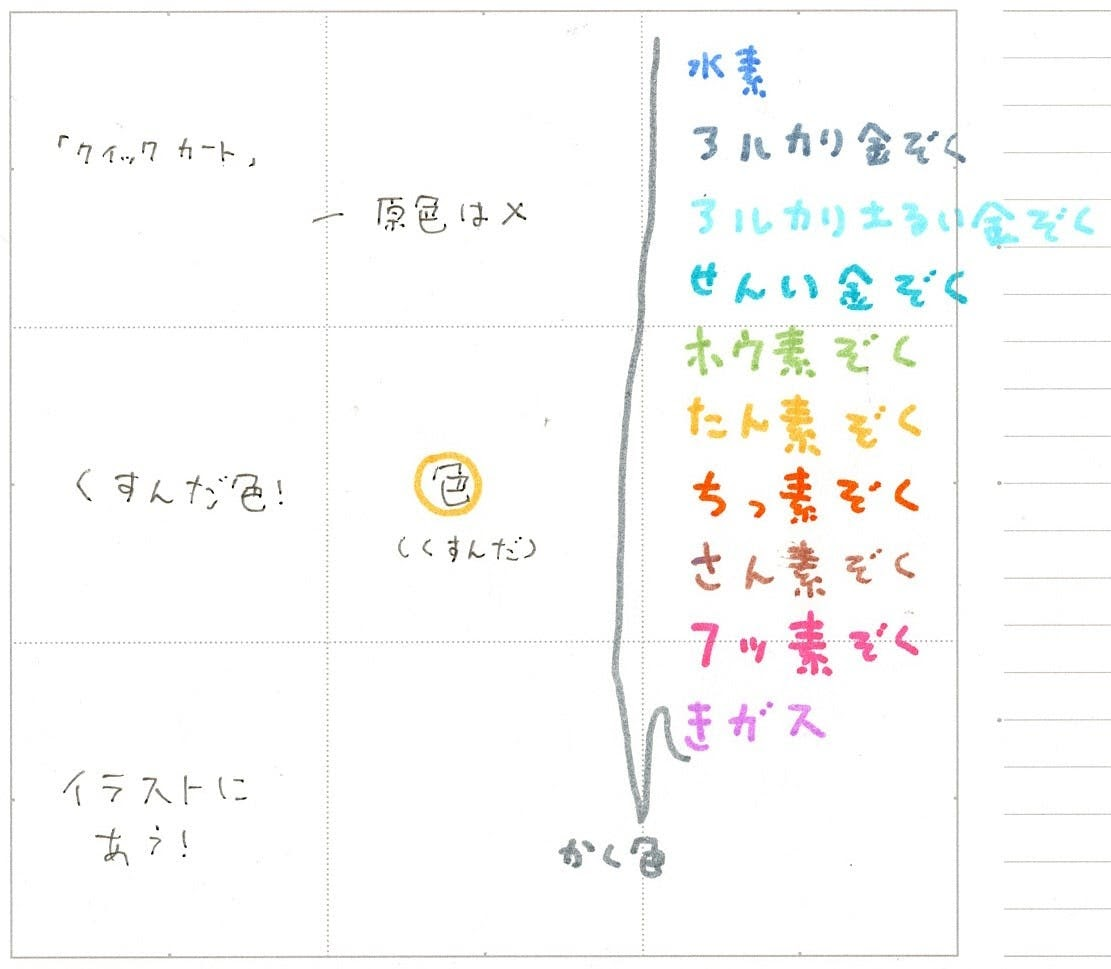 「クイックカート」
― 原色は×
くすんだ色!
色
(くすんだ)
イラストに
あう!
水素
アルカリ金ぞく
アルカリ土るい金ぞく
せんい金ぞく
ホウ素ぞく
たん素ぞく
ちっ素ぞく
さん素ぞく
フッ素ぞく
きガス
かく色